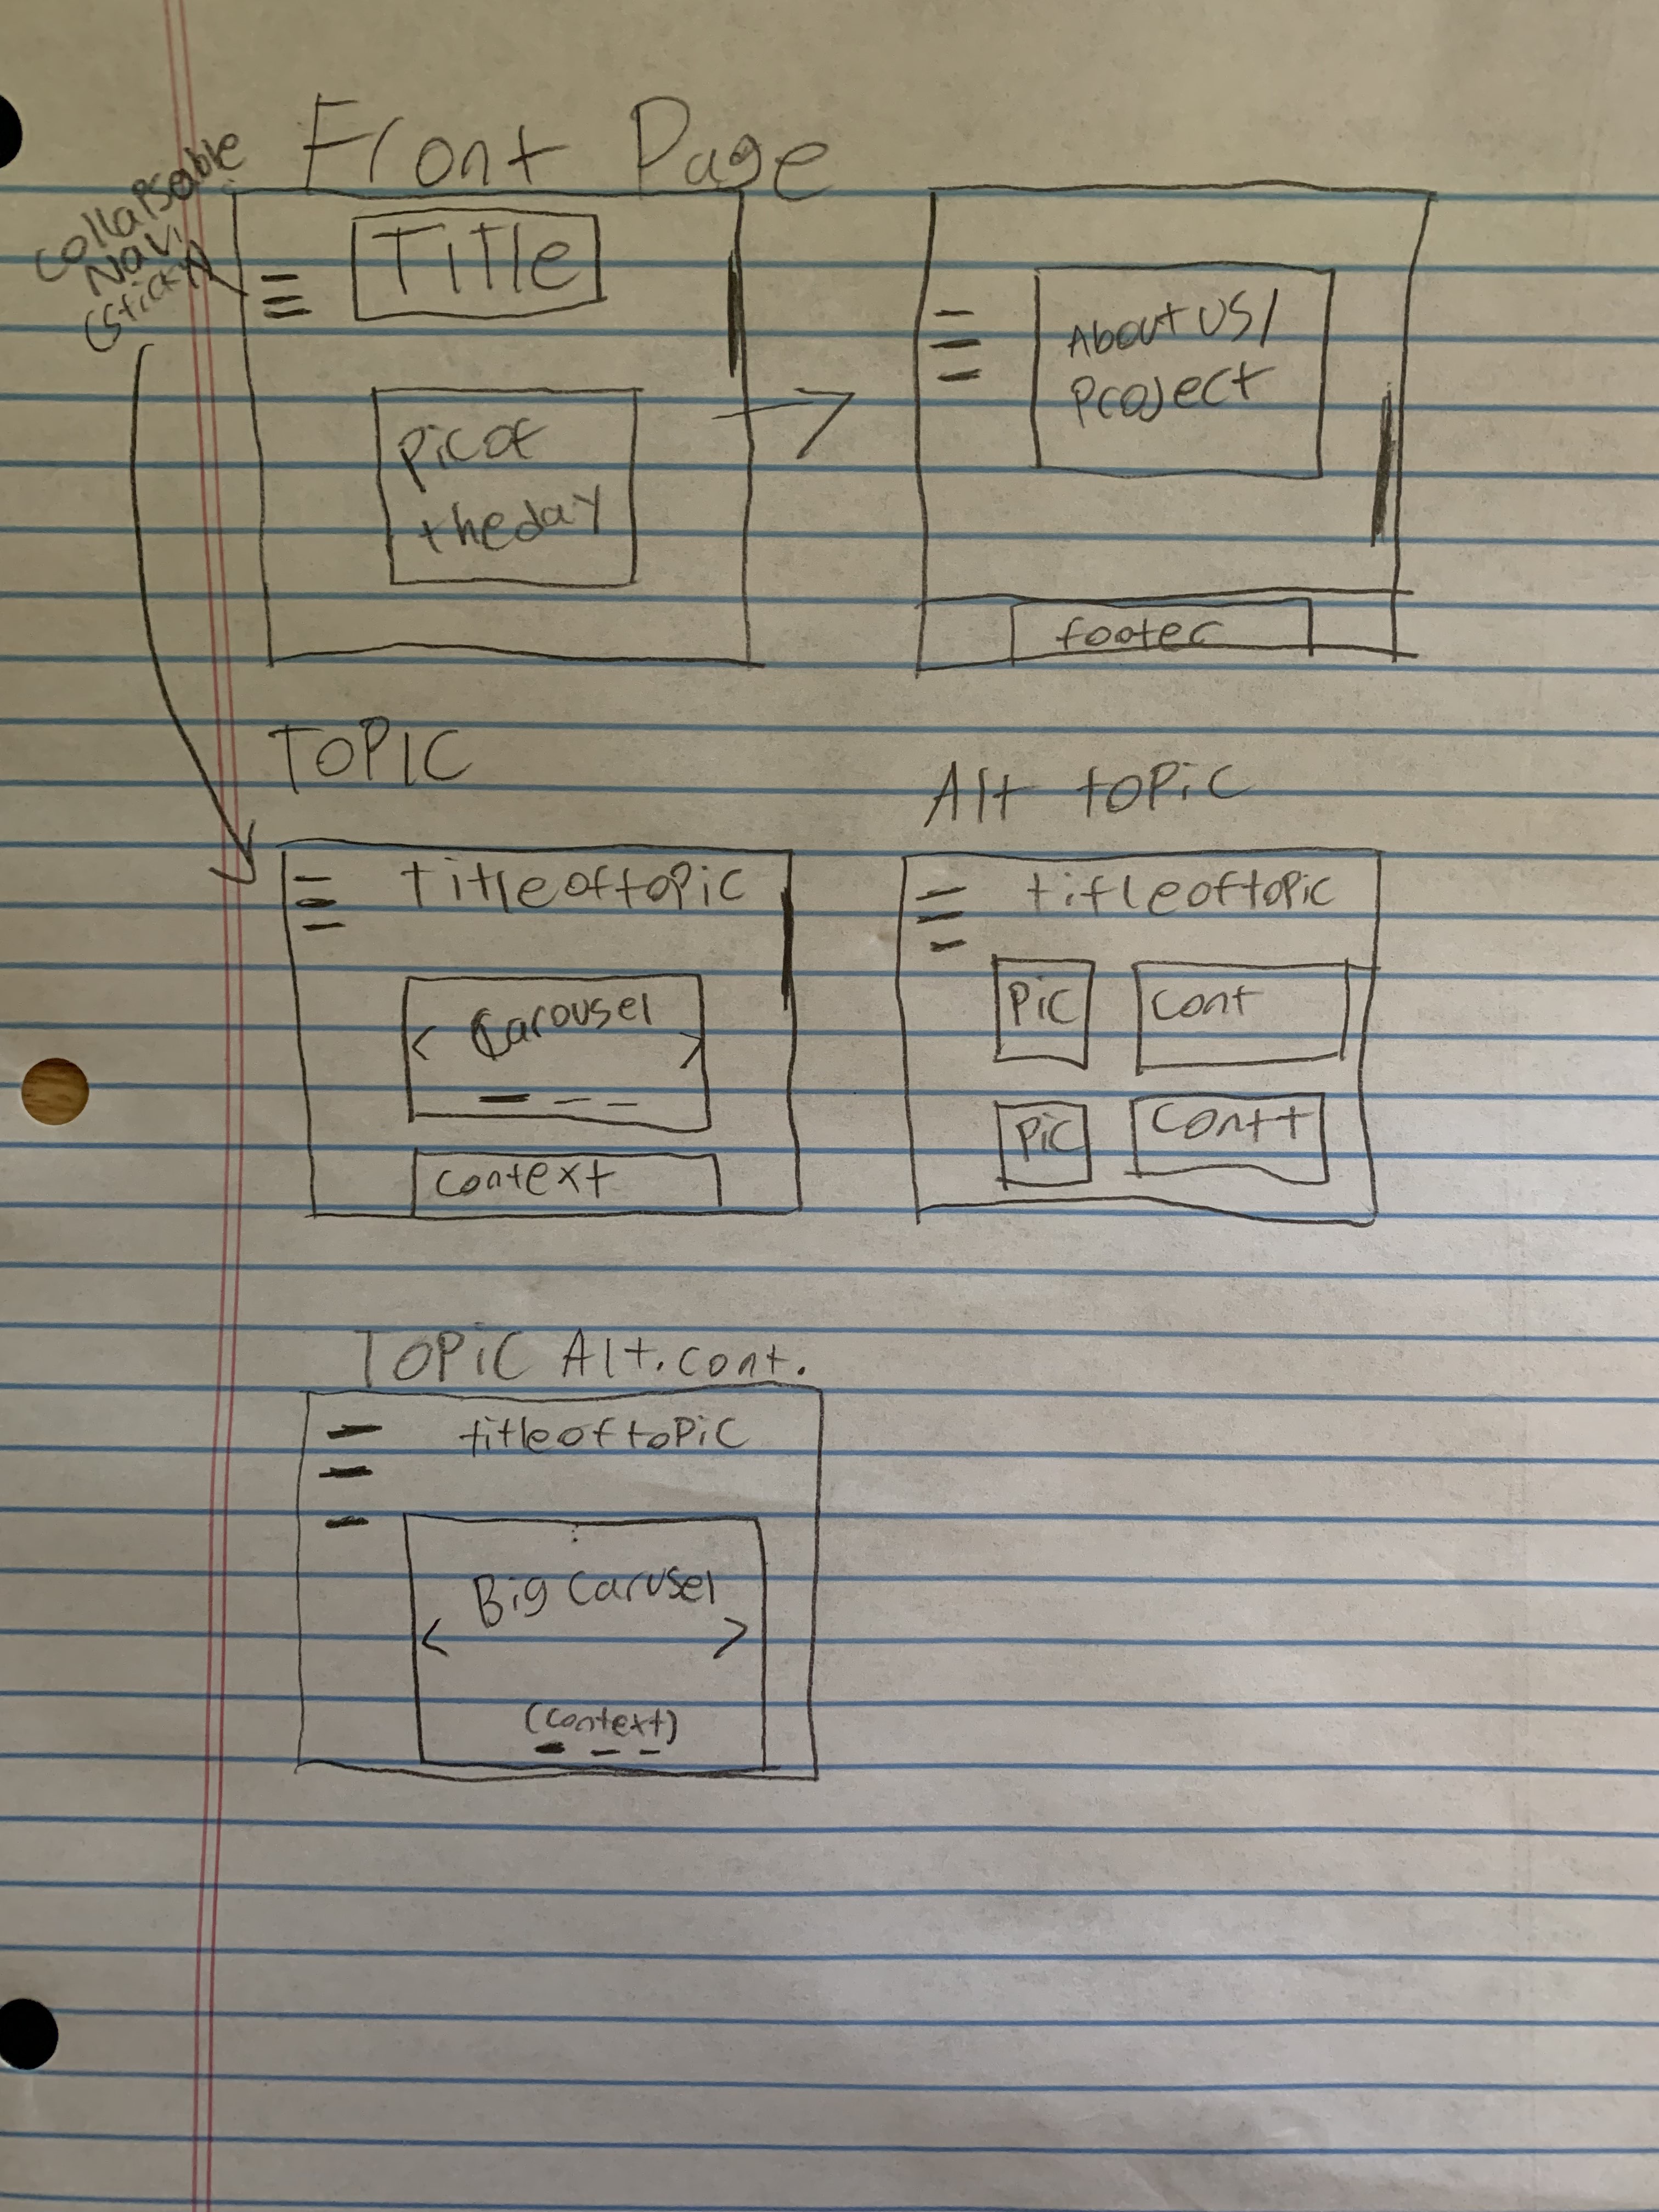 Front Page
Collapsable
Nav.
(Sticky)
Title
Pic of
the day
About US/
Project
footer
TOPIC
Alt topic
title of topic
Carousel
context
title of topic
Pic
Cont
Pic
Contt
TOPIC Alt. cont.
title of topic
Big Carusel
(context)